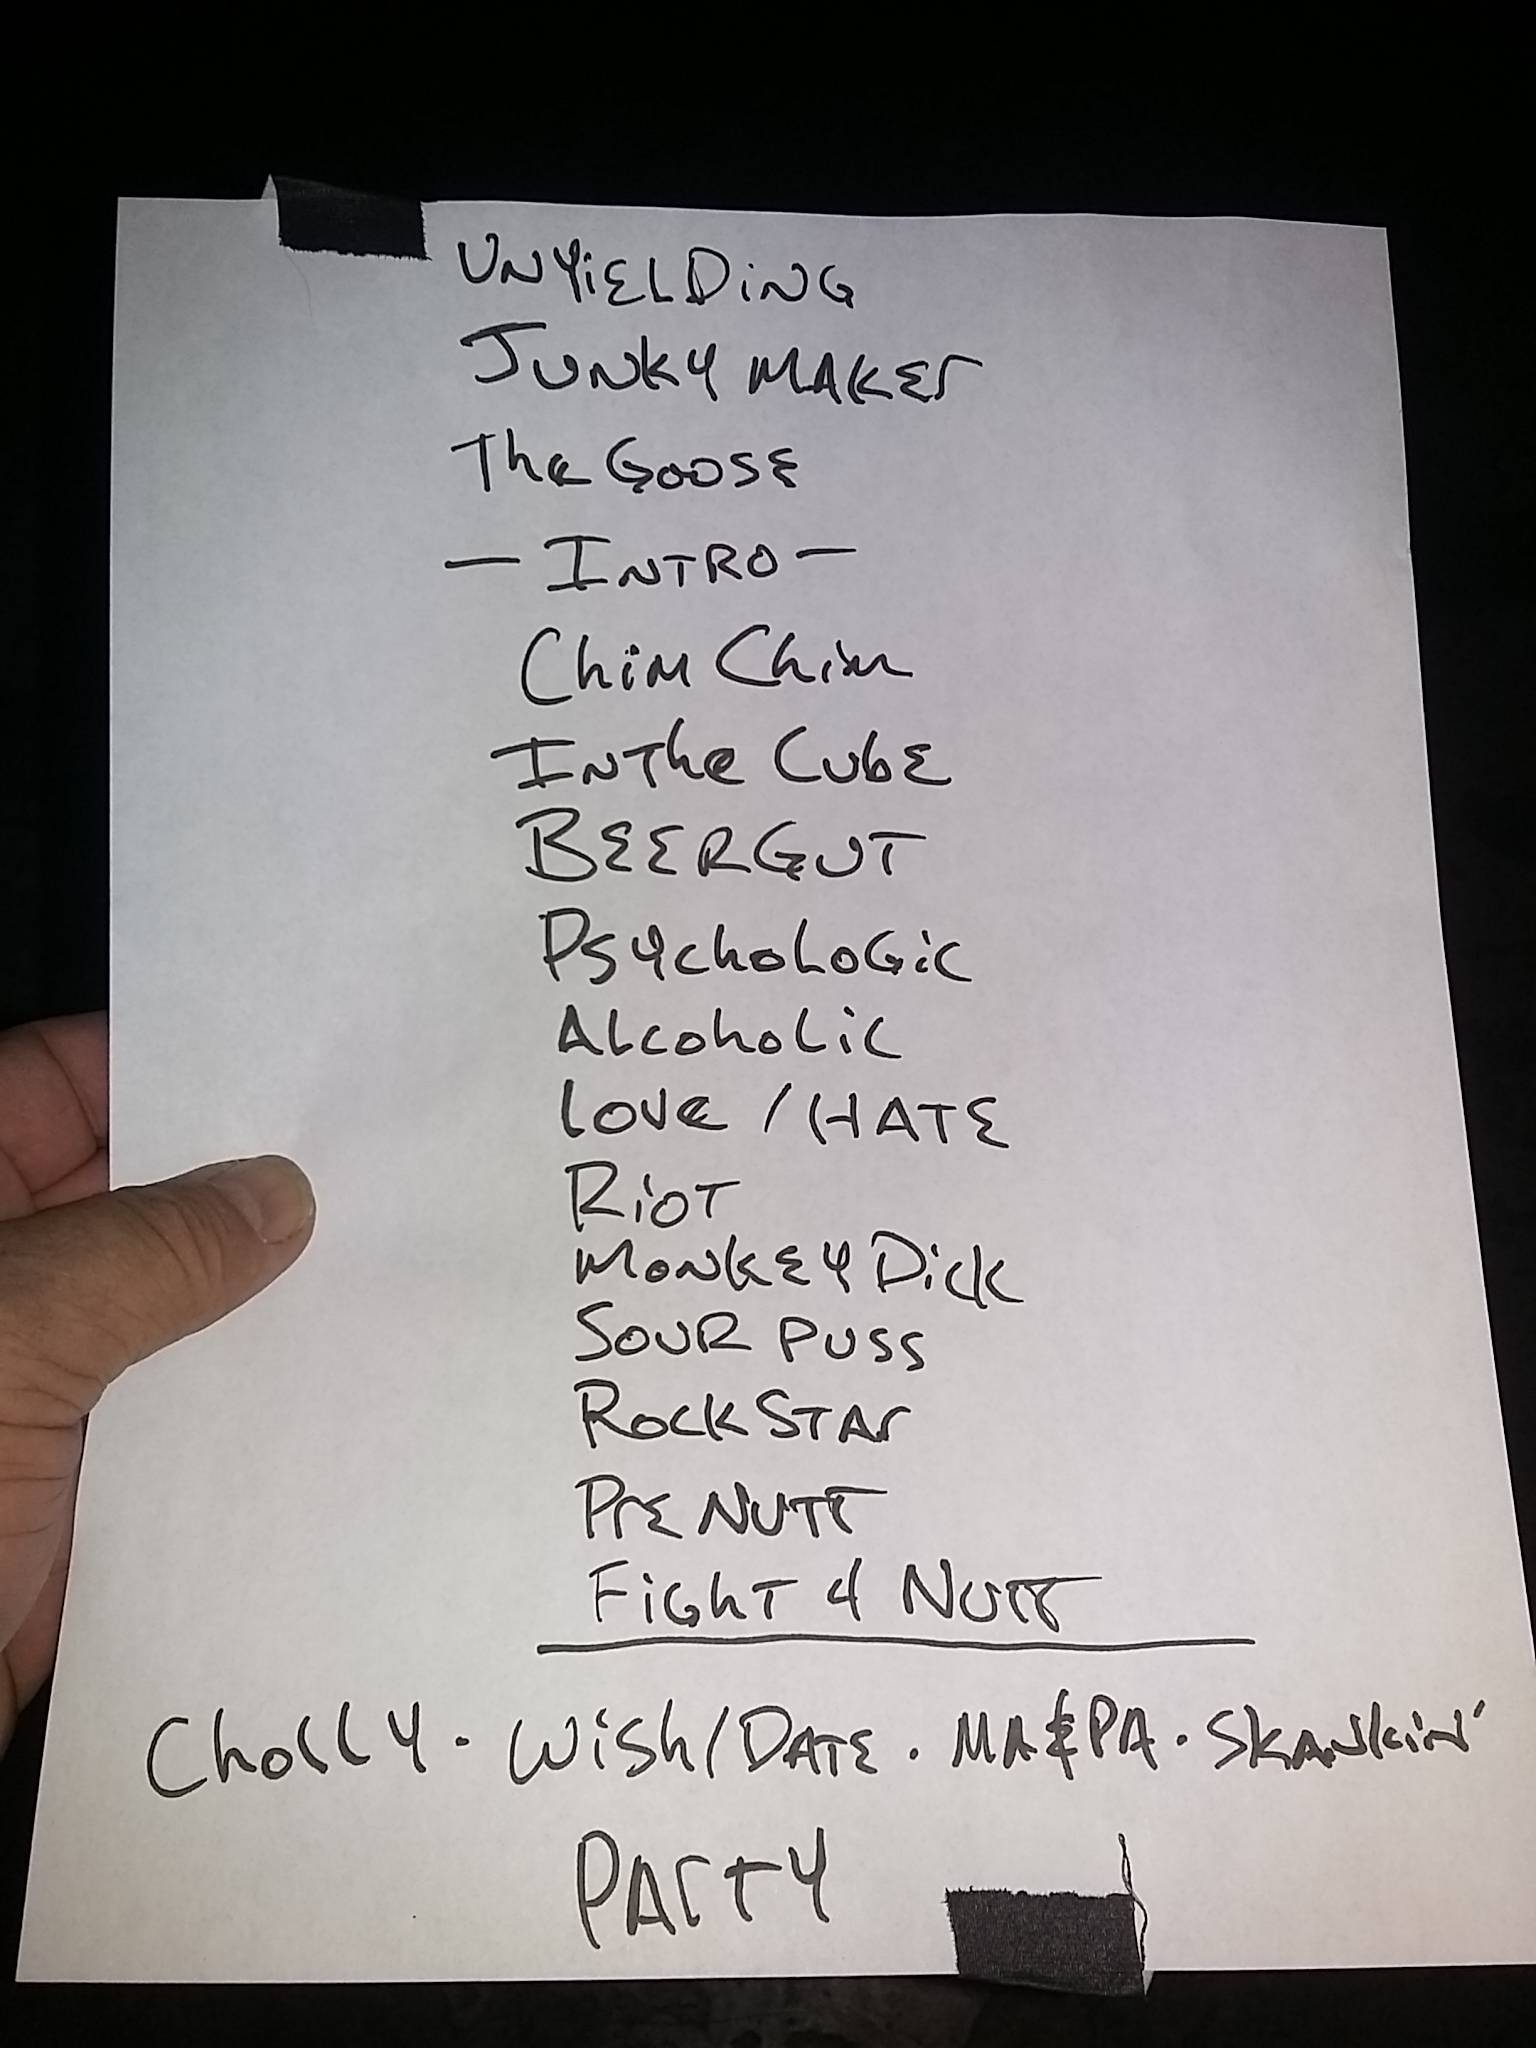 UNYiELDiNG
JUNKY MAKEr
The GOOSE
— INTRO —
Chim Chim
IN The CubE
BEERGUT
PsychoLoGic
ALcohoLic
Love / HATE
RioT
MoNKEY Dick
SOUR PUSS
RockSTAr
PrE NUTT
FiGhT 4 NUTT
Cholly · Wish/DATE · MA&PA · SKANKiN'
PArTY